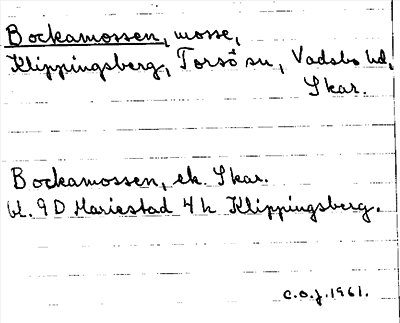 Bockamossen, mosse,
Klippingsberg, Torsö sn, Vadsbo hd,
Skar.
Bockamossen, ek. Skar.
bl. 9D Mariestad 4h Klippingsberg.
C.O.J. 1961.